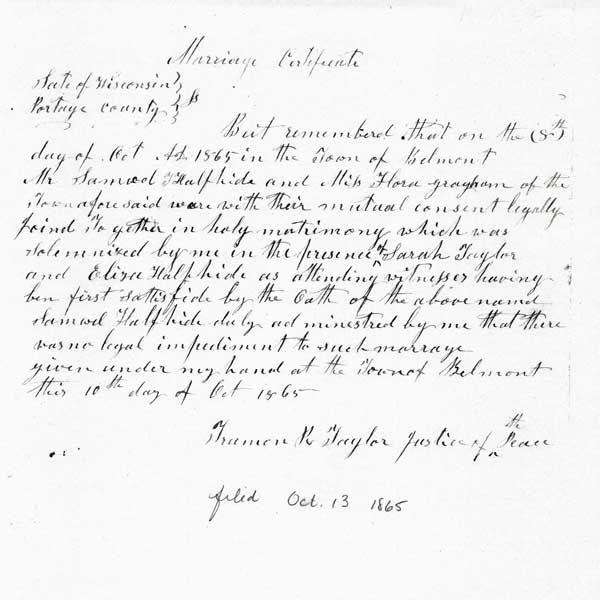 Marriage Certificate
State of Wisconsin }
Portage County } SS
But remembered that on the (8th)
day of Oct AD 1865 in the Town of Belmont
Mr Samwel Halfhide and Miss Flora grayham of the
Town aforesaid were with their mutual consent legally
joind To gether in holy matrimony which was
solemnized by me in the presence of Sarah Taylor
and Eliza Halfhide as attending witnesses having
ben first sattisfide by the Oath of the above named
Samwel Halfhide duly ad minestred by me that there
was no legal impediment to such marrage
given under my hand at the Town of Belmont
this 10th day of Oct 1865
Truman R Taylor Justice of th Peace
filed Oct. 13 1865